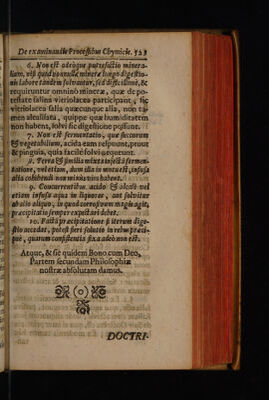 De examinandis Processibus Chymicis. 523
6. Non est adeoque putrefactio minera-
lium, nisi quod nonnullæ mineræ longo digestio-
nis labore tandem solvantur, sed difficillimè, &
requiruntur omnino mineræ, quæ de po-
testate salina vitriolacea participant, sic
vitriolacea salia quæcunque alia, non ta-
men alcalisata, quippe quæ humiditatem
non habent, solvi sic digestione possunt.
7. Non est fermentatio, quæ succorum
& vegetabilium, acida eam respuunt, prout
& pinguia, quia facilè solvi nequeunt.
8. Terra & similia mixta infecta fermen-
tatione, vel etiam, dum illa in motu est, infusa
alia cohibendi non minus vim habent.
9. Concurrentibus acido & alcali vel
etiam infusa aqua in liquorem, aut solvitur
ab alio aliquo, in quod corrosivum magis agit,
præcipitatio semper expectari debet.
10. Facta præcipitatione si iterum dige-
stio accedat, potest fieri solutio in rebus præci-
puè, quarum consistentia fixa adeò non est.
Atque, & sic quidem Bono cum Deo,
Partem secundam Philosophiæ
nostræ absolutam damus.
DOCTRI-